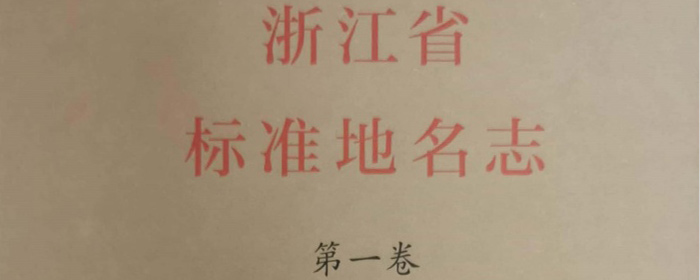 浙江省
标准地名志
第一卷